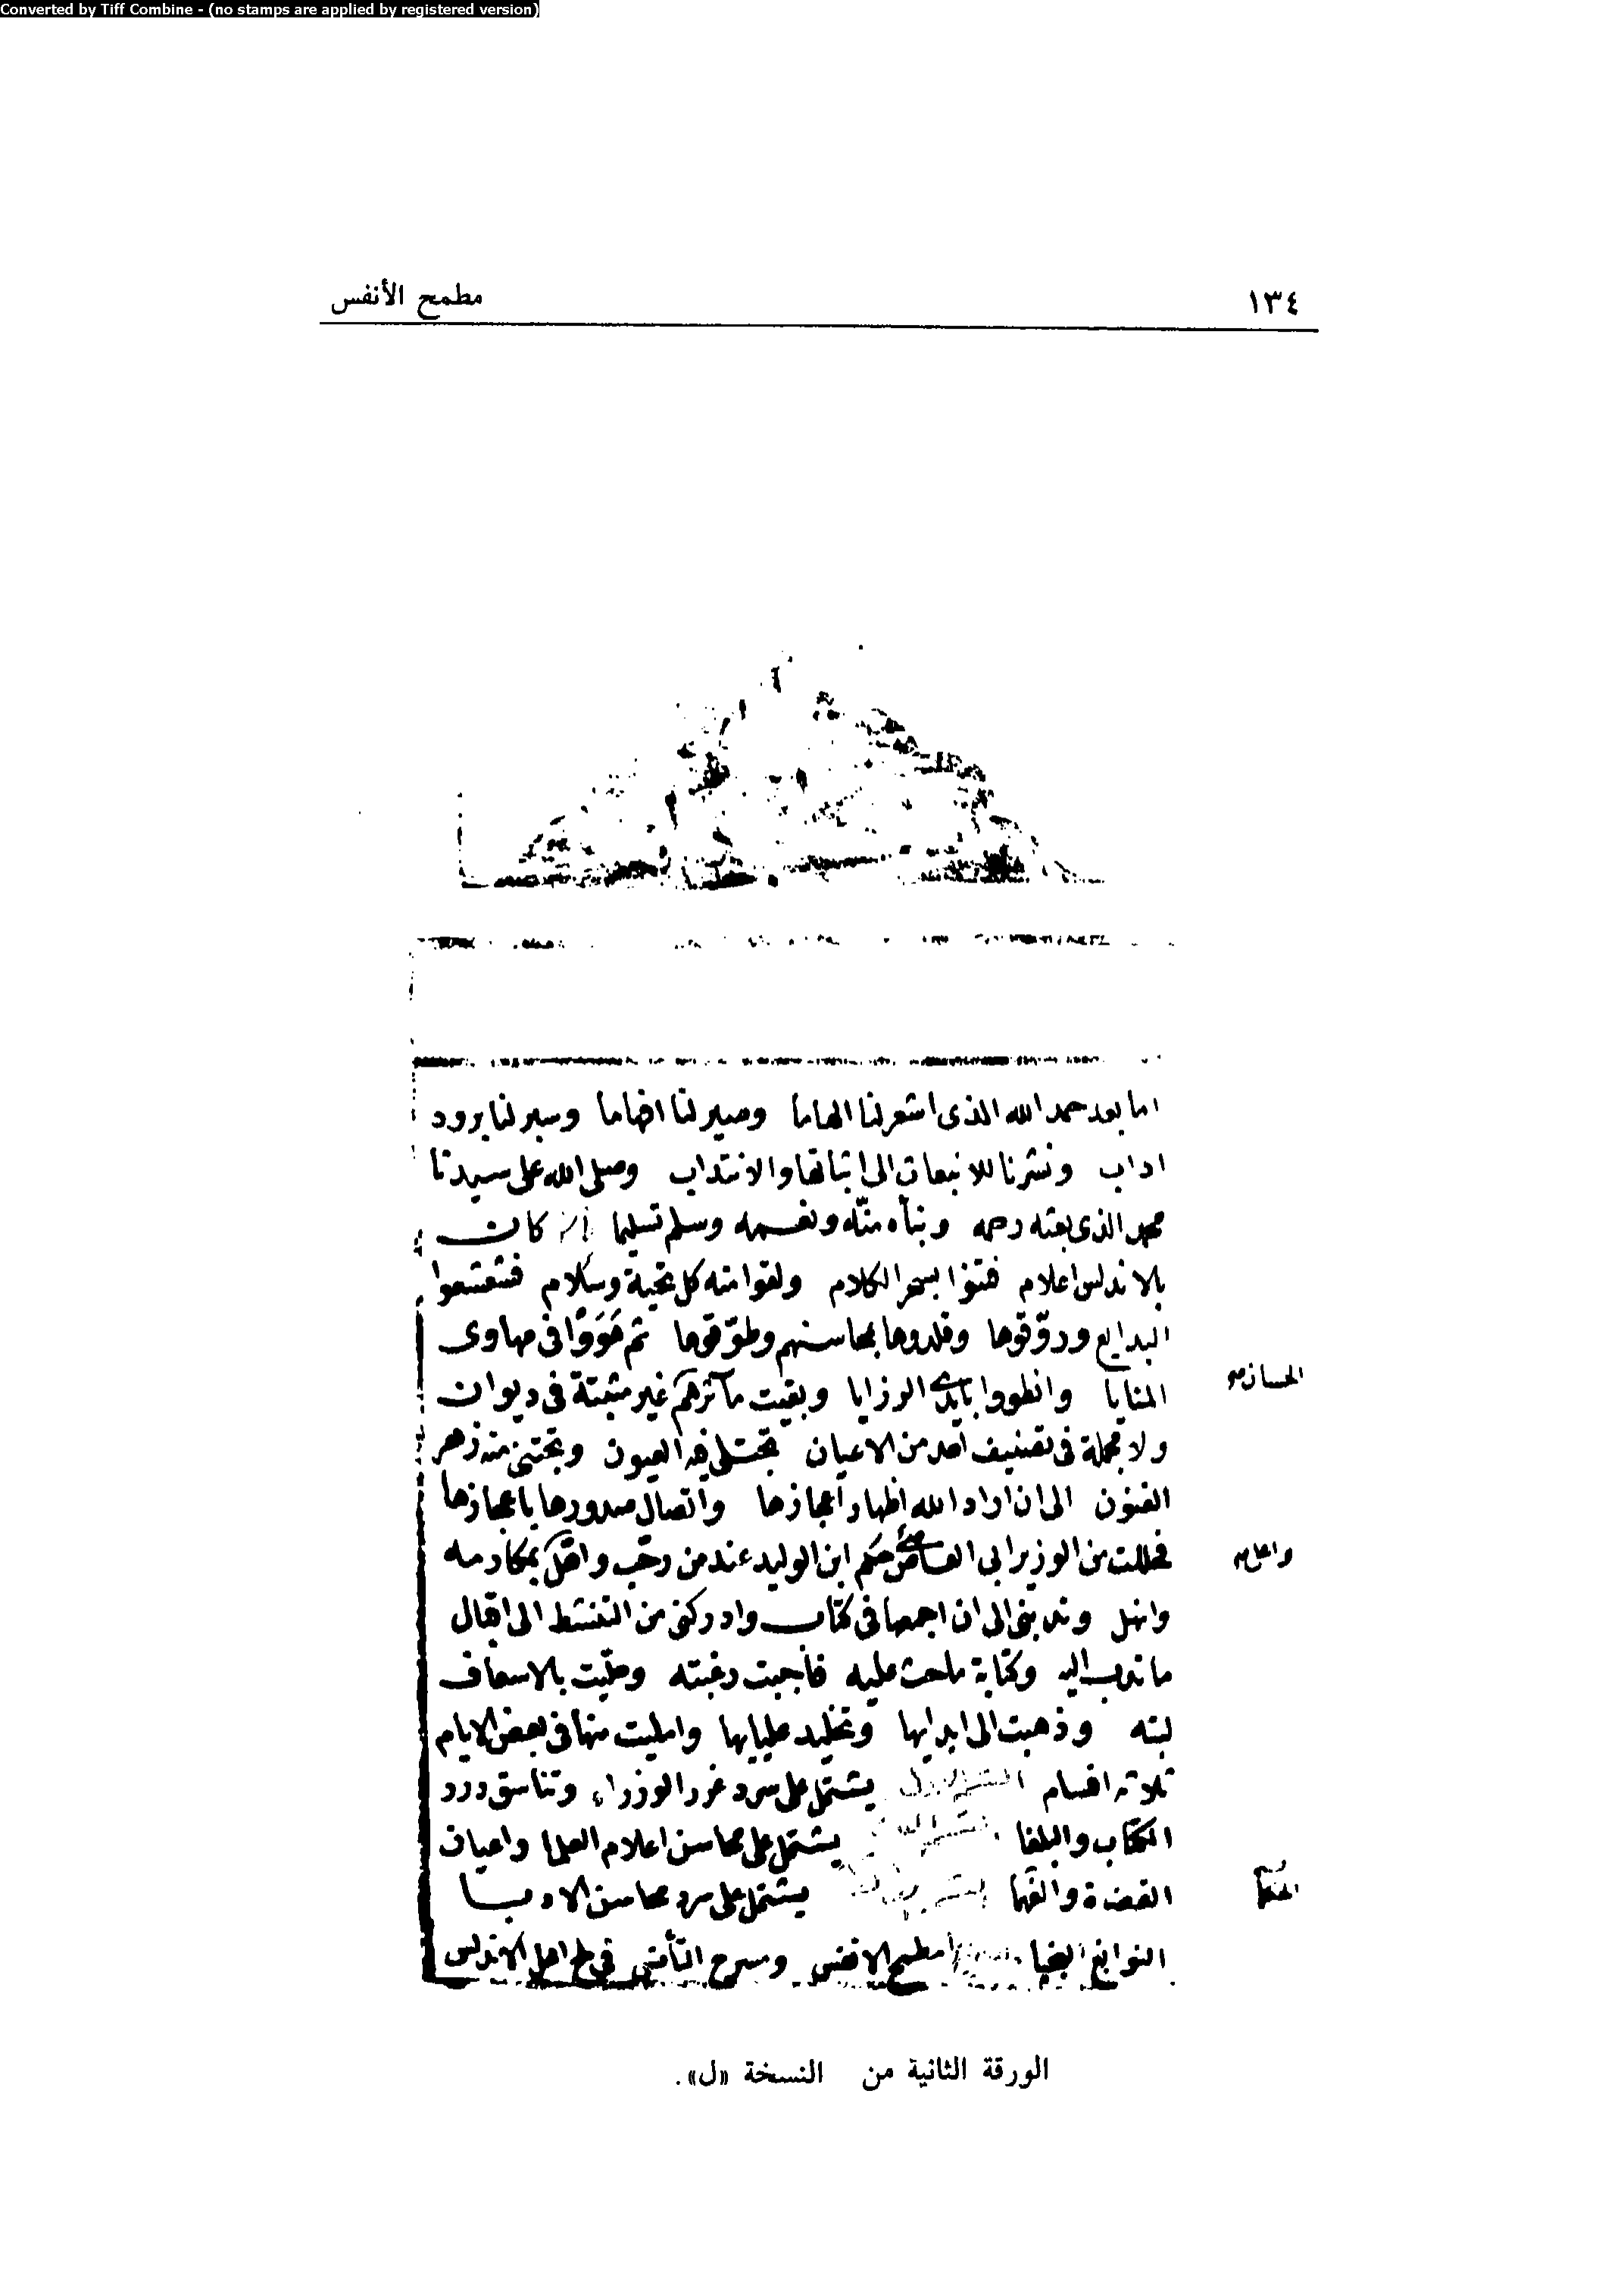 Converted by Tiff Combine - (no stamps are applied by registered version)
١٣٤
مطمح الأنفس
اما بعد حمد الله الذى اشعرلنا الهاما وصيرلنا افهاما وسبر لنا برود
اداب ونشرنا للانبعاث الى اثباتها والانتداب وصلى الله على سيدنا
محمد الذى بعثه رحمه ونبأه منّه ونعمه وسلم تسليما كان
بالاندلس اعلام فتنوا بسحر الكلام ولقوا منه كل تحية وسلام فشعشعوا
البدايع وروّقوها وقلدوها بمحاسنهم وطوّقوها ثم هَوَوْا فى مهاوى
المنايا وانطووا بايدى الرزايا وبقيت مآثرهم غير مثبتة فى ديوان
الحسان
ولا مجملة فى تصنيف احد من الاعيان تجتلى فيه العيون وتجتنى منه زهر
الفنون الى ان اراد الله اظهار اعجازها واتصال صدورها باعجازها
فحللت من الوزير ابى العاصى حكم ابن الوليد عند من رحّب واهّل بمكارمه
وانهل وندبنى الى ان اجمعها فى كتاب وادركنى من التنشط الى اقبال
ما ندب اليه وكتابة ما حث عليه فأجبت رغبته وحلّيت بالاسعاف
لبته وذهبت الى ابدايها وتخليد عليايها وامليت منها فى بعض الايام
ثلاثه اقسام القسم الاول يشتمل على سرد غرر الوزراء وتناسق درر
الكتاب والبلغا يشتمل على محاسن اعلام العلما واعيان
القضاة والفقها يشتمل على سرد محاسن الادبا
النوابغ النجبا مطمح الانفس ومسرح التأنس فى ملح اهل الاندلس
الورقة الثانية من النسخة «ل».